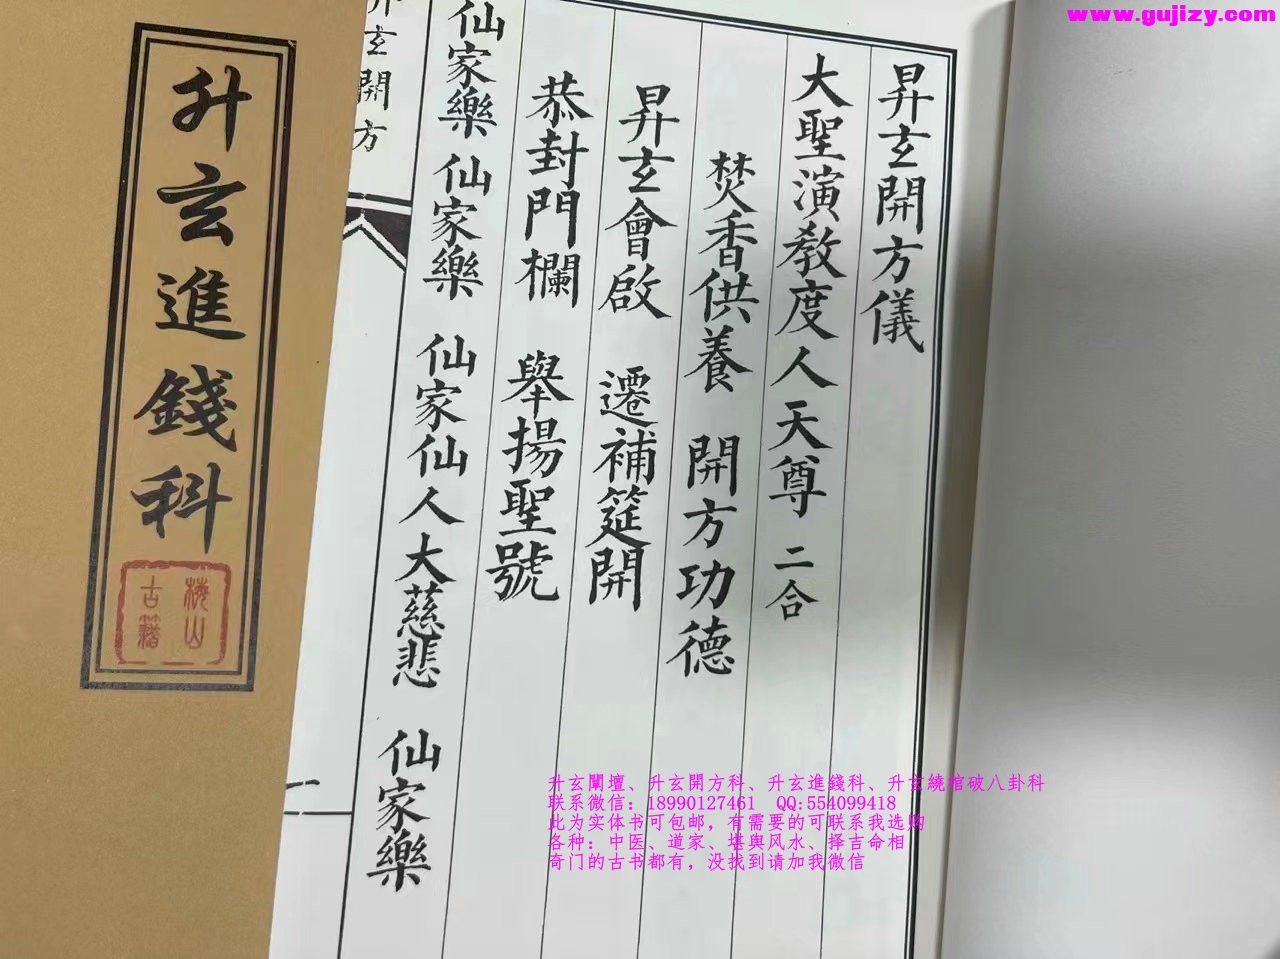 www.gujizy.com
昇玄開方儀
大聖演教度人天尊 二合
焚香供養 開方功德
昇玄會啟 遷補筵開
恭封門欄 舉揚聖號
仙家樂仙家樂 仙家仙人大慈悲 仙家樂
升玄開方
一
升玄進錢科
梅山
古籍
升玄闡壇、升玄開方科、升玄進錢科、升玄繞棺破八卦科
联系微信：18990127461 QQ:554099418
此为实体书可包邮，有需要的可联系我选购
各种：中医、道家、堪舆风水、择吉命相
奇门的古书都有，没找到请加我微信